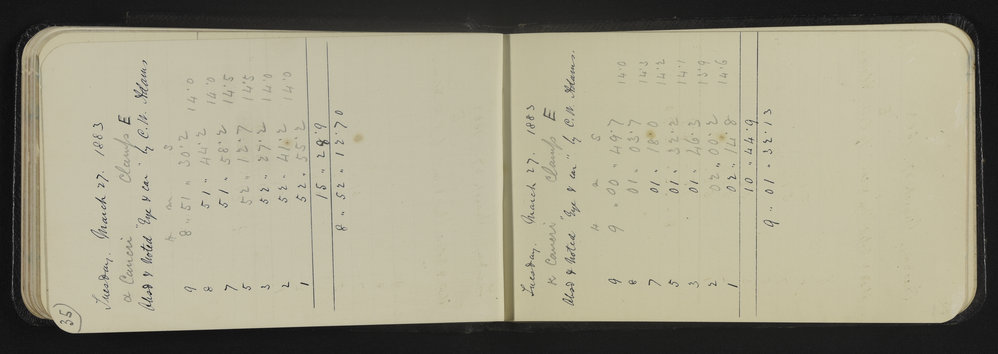 35
Tuesday. March 27. 1883
α Cancri Clamps E
Obsd & Noted "Eye & ear" by C.N. Adams,
h m s
9 8 .. 51 .. 30.2 14.0
8 51 .. 44.2 14.0
7 51 .. 58.2 14.5
5 52 .. 12.7 14.5
3 52 .. 27.2 14.0
2 52 .. 41.2 14.0
1 52 .. 55.2
15 .. 28.9
8 .. 52 .. 12.70
Tuesday. March 27. 1883
κ Cancri Clamps E
Obsd & Noted "Eye & ear" by C.N. Adams.
h m s
9 9 .. 00 .. 49.7 14.0
8 01 .. 03.7 14.3
7 01 .. 18.0 14.2
5 01 .. 32.2 14.1
3 01 .. 46.3 13.9
2 02 .. 00.2 14.6
1 02 .. 14.8
10 .. 44.9
9 .. 01 .. 32.13